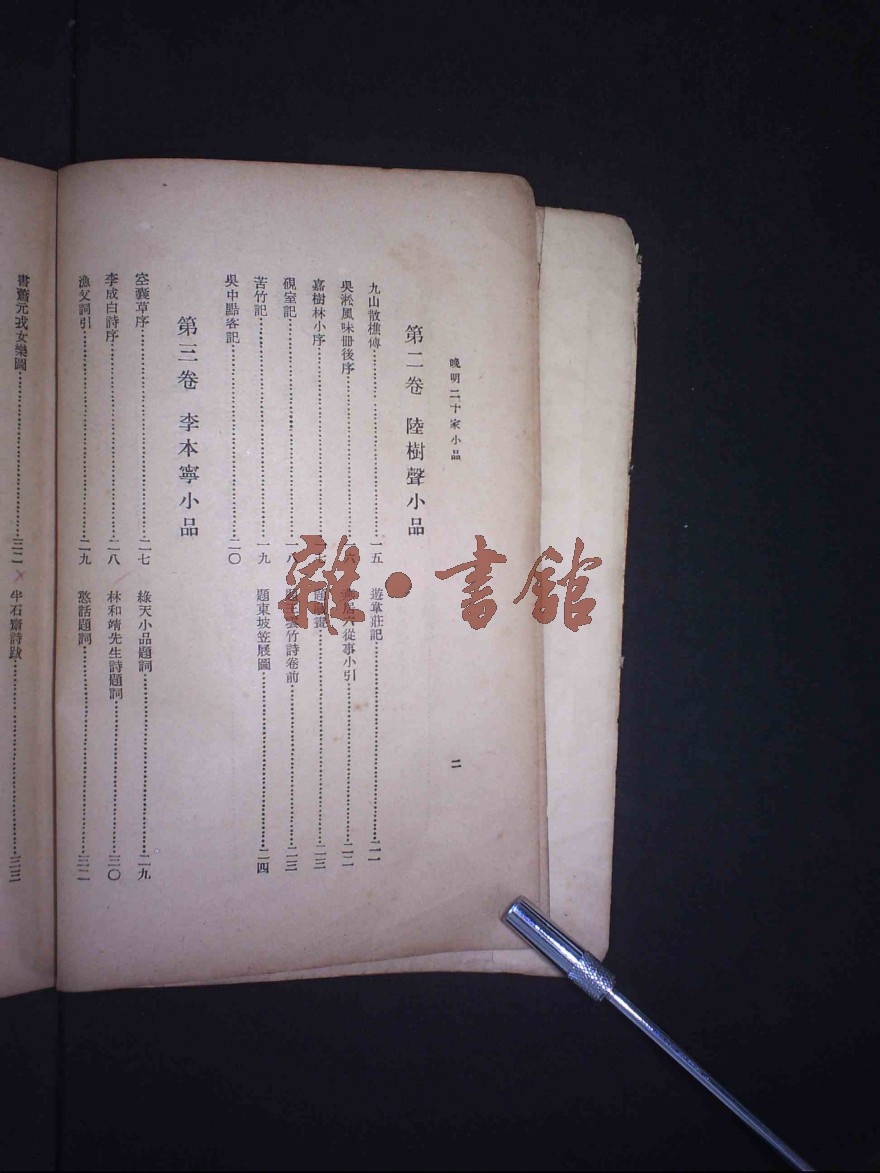 晚明二十家小品
二
第二卷 陸樹聲小品
九山散樵傳……一五
遊韋莊記……二一
吳淞風味冊後序……一六
居六從事小引……二二
嘉樹林小序……一七
題……二三
硯室記……一八
題王雲竹詩卷前……二三
苦竹記……一九
題東坡笠屐圖……二四
吳中點客記……二〇
第三卷 李本寧小品
空囊草序……二七
綠天小品題詞……二九
李成白詩序……二八
林和靖先生詩題詞……三〇
漁父詞引……二九
憨話題詞……三二
書蕭元戎女樂圖……三二
半石齋詩跋……三三
雜·書館